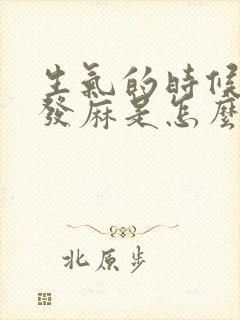 生氣的時候
發麻是怎麼
北原步